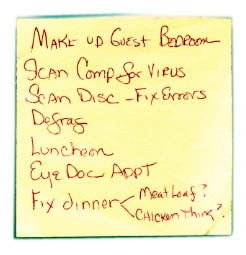 Make up Guest Bedroom
Scan Comp for Virus
Scan Disc - Fix Errors
Defrag
Luncheon
Eye Doc Appt
Fix dinner
Meatloaf?
Chicken Thing?